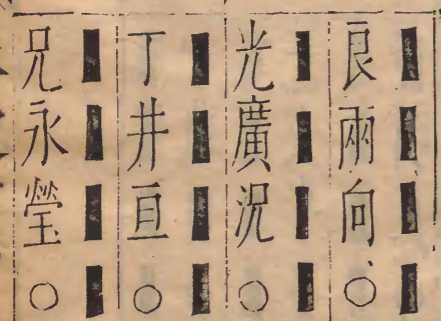 良兩向○
▇▇▇▇
光廣況○
▇▇▇▇
丁井亘○
▇▇▇▇
兄永瑩○